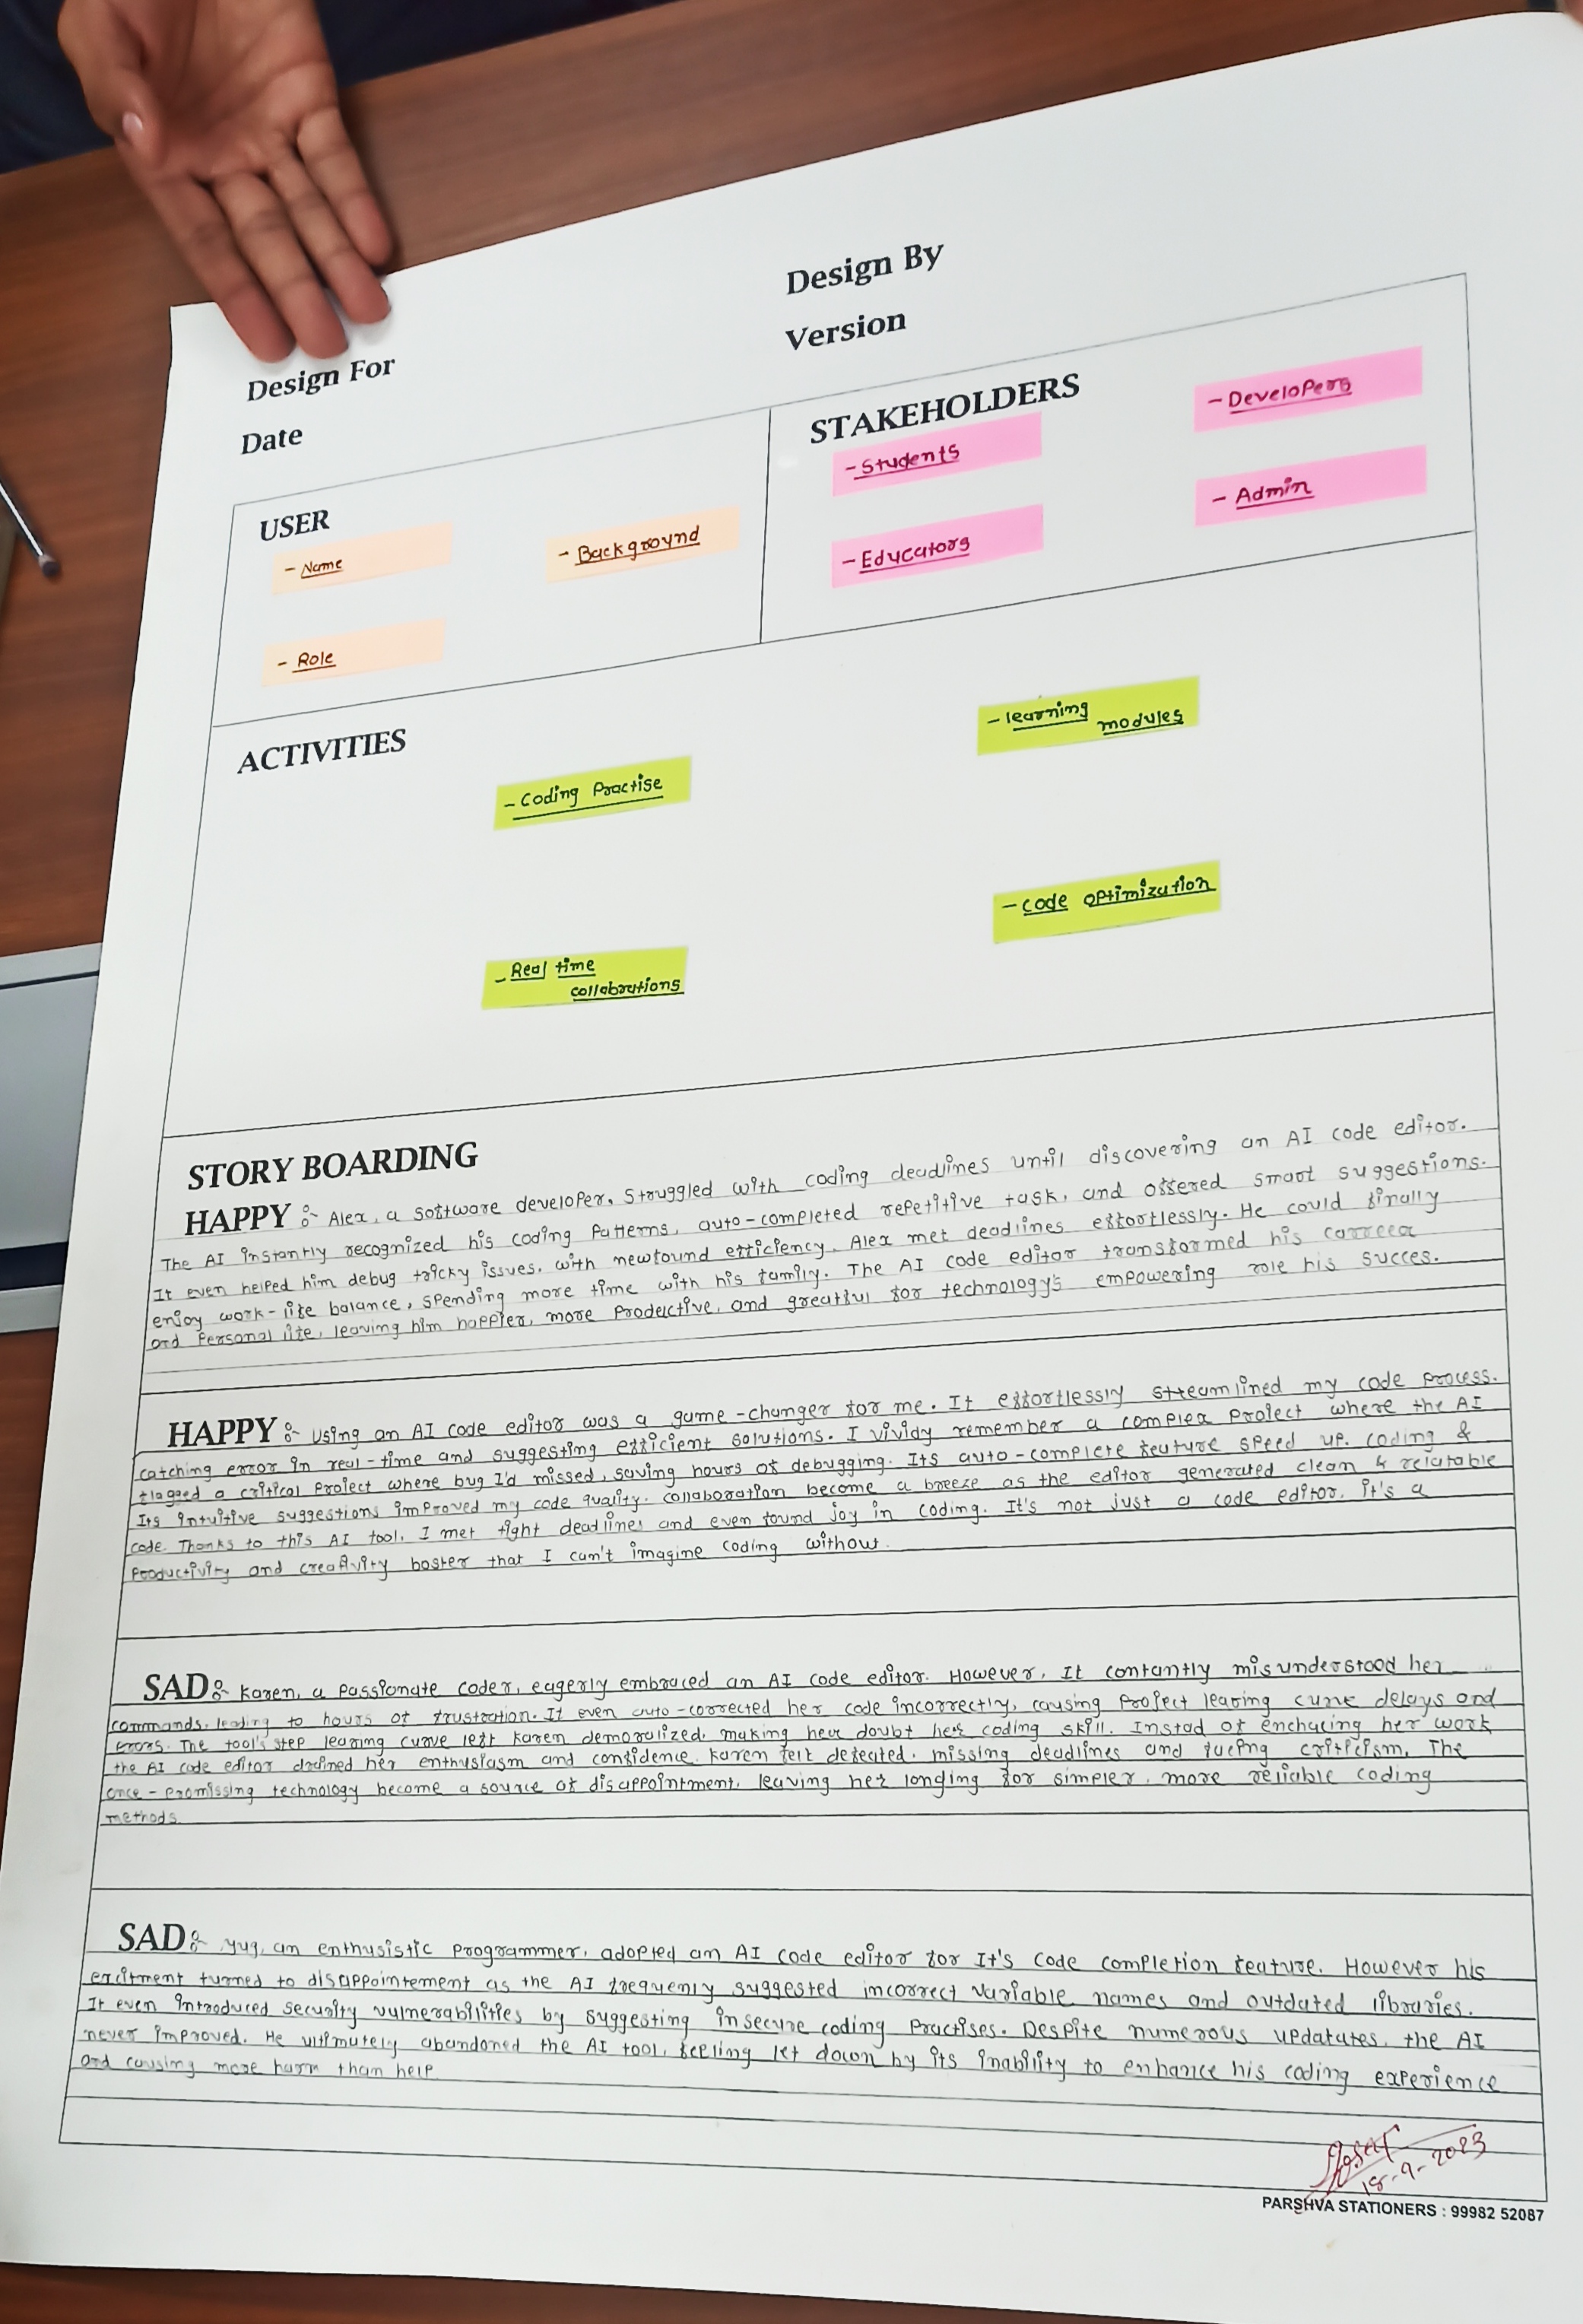 Design For
Design By
Date
Version
USER
- Name
- Background
- Role
STAKEHOLDERS
- Students
- Developers
- Educators
- Admin
ACTIVITIES
- Coding Practise
- learning modules
- Real time
collabrutions
- code optimization
STORY BOARDING
HAPPY :- Alex, a software developer, struggled with coding deadlines until discovering an AI code editor.
The AI instantly recognized his coding patterns, auto-completed repetitive task, and offered smart suggestions.
It even helped him debug tricky issues. with newfound efficiency, Alex met deadlines effortlessly. He could finally
enjoy work-life balance, spending more time with his family. The AI code editor transformed his carreer
and personal life, leaving him happier, more productive, and greatful for technology's empowering role his succes.
HAPPY :- using an AI code editor was a game-changer for me. It effortlessly streamlined my code process.
catching error in real-time and suggesting efficient solutions. I vividy remember a complex project where the AI
flagged a critical project where bug I'd missed, saving hours of debugging. Its auto-complete feature speed up. coding &
Its intuitive suggestions improved my code quality. collaboration become a breeze as the editor generated clean &
code. Thanks to this AI tool, I met tight deadlines and even found joy in coding. It's not just a code editor, it's a
productivity and creativity boster that I can't imagine coding without.
SAD :- Karen, a passionate coder, eagerly embraced an AI code editor. However, It contantly misunderstood her
commands, leading to hours of frustration. It even auto-corrected her code incorrectly, causing project learing curve delays and
errors. The tool's step learing curve left karen demoralized, making her doubt her coding skill. Instad of enchacing her work
the AI code editor drained her enthusiasm and confidence. Karen felt defeated, missing deadlines and facing criticism. The
once-promissing technology become a source of disappointment, leaving her longing for simpler, more reliable coding
methods.
SAD :- Yug, an enthusistic programmer, adopted an AI code editor for It's code completion feature. However his
exitment turned to disappointement as the AI frequenly suggested incorrect variable names and outdated libraries.
It even introduced security vulnerabilities by suggesting insecure coding practises. Despite numerous updatates, the AI
never improved. He ultimutely abandoned the AI tool, feeling let down by its inability to enhance his coding experience
and causing more harm than help.
18-9-2023
PARSHVA STATIONERS : 99982 52087